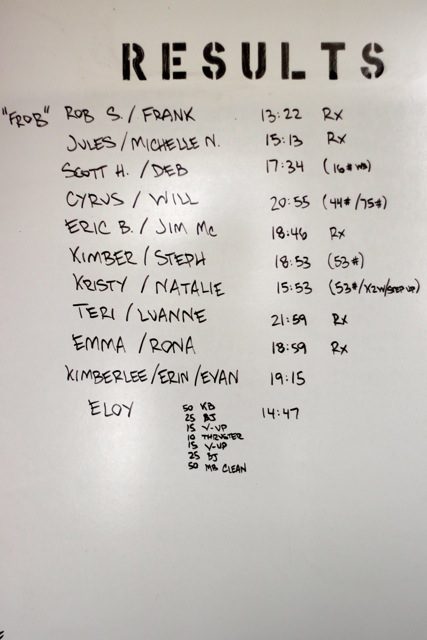 RESULTS
"FROB" ROB S. / FRANK 13:22 Rx
JULES / MICHELLE N. 15:13 Rx
SCOTT H. / DEB 17:34 (16# WB)
CYRUS / WILL 20:55 (44# / 75#)
ERIC B. / JIM Mc 18:46 Rx
KIMBER / STEPH 18:53 (53#)
KRISTY / NATALIE 15:53 (53# / X2W/STEP UP)
TERI / LUANNE 21:59 Rx
EMMA / RONA 18:59 Rx
KIMBERLEE / ERIN / EVAN 19:15
ELOY 50 KB 14:47
25 BJ
15 V-UP
10 THRUSTER
15 V-UP
25 BJ
50 MB CLEAN